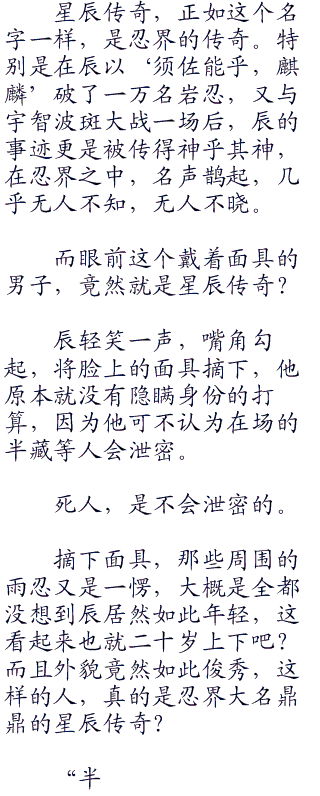 星辰传奇，正如这个名
字一样，是忍界的传奇。特
别是在辰以‘须佐能乎，麒
麟’破了一万名岩忍，又与
宇智波斑大战一场后，辰的
事迹更是被传得神乎其神，
在忍界之中，名声鹊起，几
乎无人不知，无人不晓。
而眼前这个戴着面具的
男子，竟然就是星辰传奇？
辰轻笑一声，嘴角勾
起，将脸上的面具摘下，他
原本就没有隐瞒身份的打
算，因为他可不认为在场的
半藏等人会泄密。
死人，是不会泄密的。
摘下面具，那些周围的
雨忍又是一愣，大概是全都
没想到辰居然如此年轻，这
看起来也就二十岁上下吧？
而且外貌竟然如此俊秀，这
样的人，真的是忍界大名鼎
鼎的星辰传奇？
“半